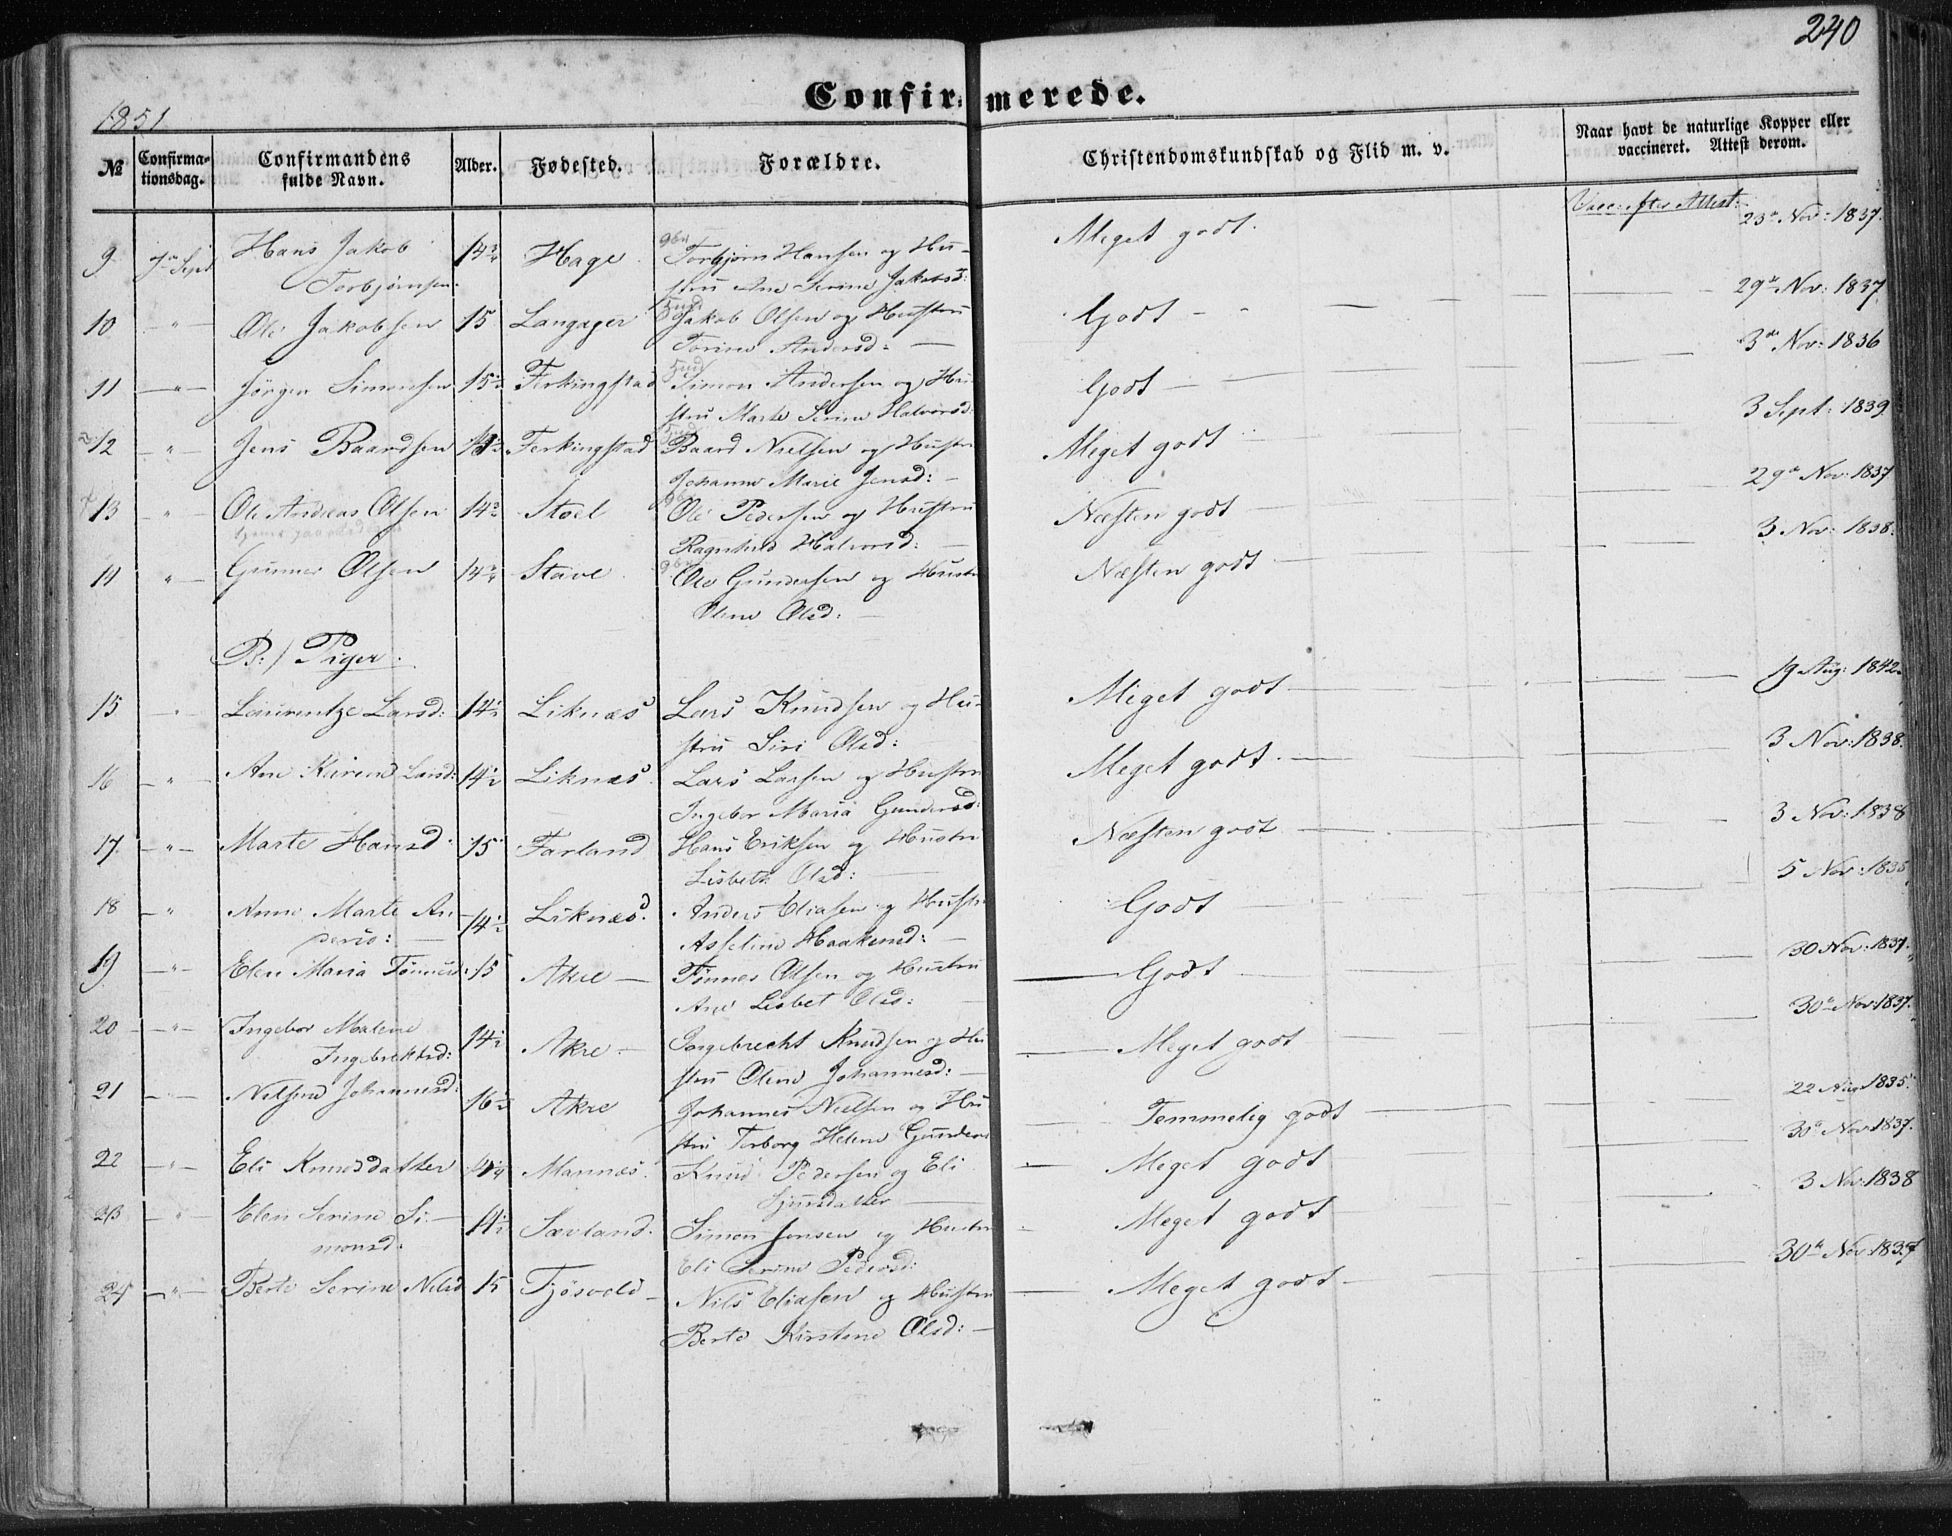 240
Confirmerede.
1851
№ Confirmationsdag. Confirmandens fulde Navn. Alder. Fødested. Forældre. Christendomskundskab og Flid m. v. Naar havt de naturlige Kopper eller vaccineret. Attest derom.
Vacc: efter Attest:
9 7de Sept Hans Jakob 14 Hage Torbjørn Hansen og Hu- Meget godt. 23de Nov: 1837.
Torbjørnsen. stru Ane Serine Jakobsd:
10 " Ole Jakobsen 15 Langager Jakob Olsen og Hustru Godt 29de Nov: 1837
Torine Andersd:
11 " Jørgen Simonsen 15½ Ferkingstad Simon Andersen og Hu Godt 3de Nov: 1836
stru Marte Serine Halvorsd:
12 " Jens Baardsen Ferkingstad Baard Nielsen og Hustru Meget godt 3 Sept: 1839
Johanne Marie Jensd:
13 " Ole Andreas Olsen 14 Stoel Ole Pedersen og Hustru Næsten godt 29de Nov: 1837
Ragnhild Halvorsd:
14 " Gunner Olsen 14 Stave Ole Gundersen og Hustru Næsten godt 3 Nov: 1838.
Oline Olsd:
B:/ Piger.
15 " Laurentze Larsd: 14½ Liknæs Lars Knudsen og Hu- Meget godt 19 Aug: 1842
stru Siri Olsd:
16 " Ane Karine Larsd: 14½ Liknæs Lars Larsen og Hustru Meget godt. 3 Nov: 1838.
Ingebor Maria Gundersd:
17. " Marte Hansd: 15 Farland Hans Eriksen og Hustru Næsten godt 3 Nov: 1838
Lisbeth Olsd:
18 " Anne Marte An- 14½ Liknæs. Anders Eliasen og Hustru Godt 5 Nov: 1838
dersd: Asseline Haakensd:
19 " Elen Maria Tønnesd: 15 Akre Tønnes Olsen og Hustru Godt 30 Nov: 1837.
Ane Lisbet Olsd:
20 " Ingebor Malene 14½ Akre Ingebrecht Knudsen og Hu Meget godt 30de Nov: 1837.
Ingebrektsd: stru Oline Johannesd:
21 " Nilsine Johannesd: 16½ Akre Johannes Nielsen og Hu Temmelig godt 22 Aug 1835.
stru Torborg Helene Gunders
22 " Eli Knudsdatter Mannæs Knud Pedersen og Eli Meget godt 30de Nov: 1837.
Sjursdatter
23 " Elen Serine Si- 14½ Sævland. Simon Jensen og Hustru Meget godt 3 Nov: 1838
monsd: Eli Serine Pedersd:
24 " Berte Serine Nilsd 15 Tjösvold Nils Eliasen og Hustru Meget godt 30de Nov: 1837
Berte Kirstine Olsd: